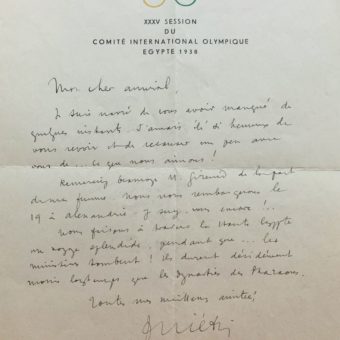 XXXV SESSION
DU
COMITÉ INTERNATIONAL OLYMPIQUE
EGYPTE 1938
Mon cher amiral,
Je suis navré de vous avoir manqué de
quelques instants. J'aurais été si heureux de
vous revoir et de causer un peu avec
vous de ... ce que nous aimons!
Remerciez beaucoup M. de la part
de ma femme. Nous nous rembarquons le
19 à Alexandrie
Nous faisons à travers la Haute Egypte
un voyage splendide, pendant que ... les
ministères tombent! Ils durent décidément
moins longtemps que les dynasties des Pharaons.
Toutes mes meilleures amitiés,